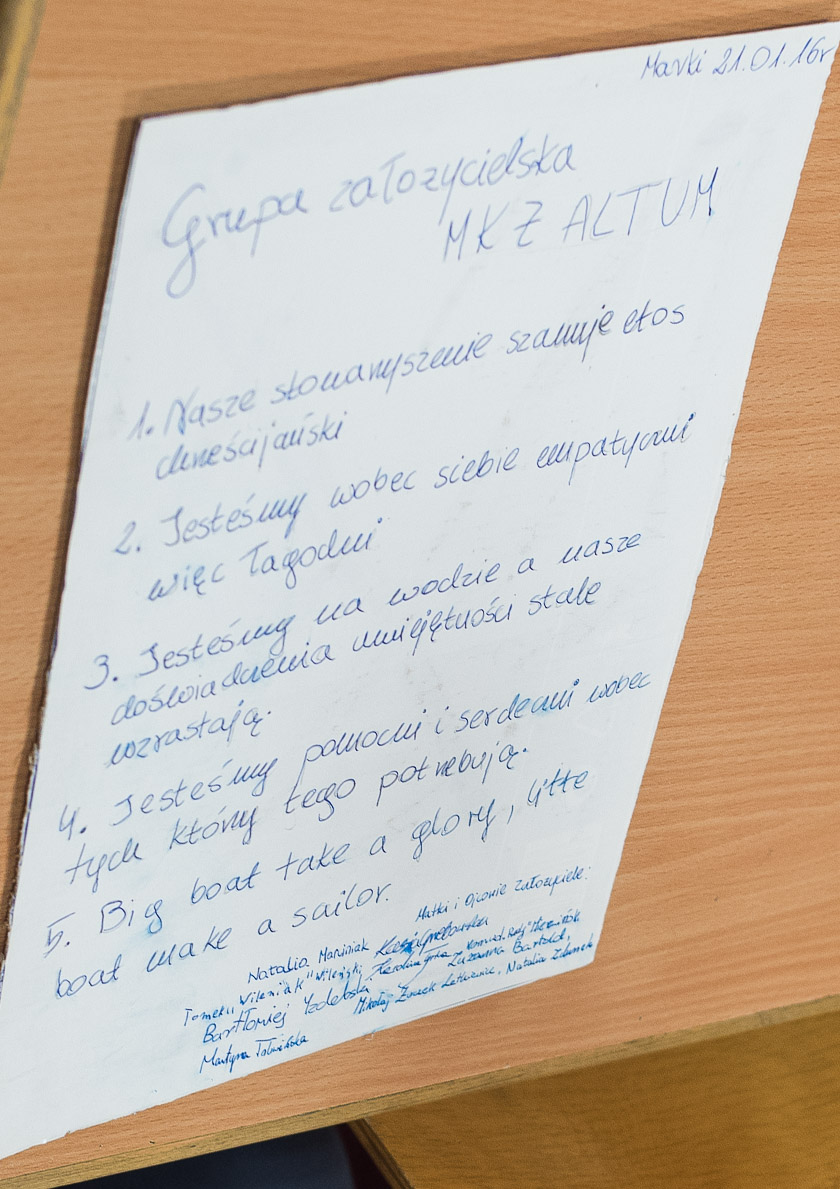 Marki 21.01.16r
Grupa założycielska
MKŻ ALTUM
1. Nasze stowarzyszenie szanuje etos
chrześcijański
2. Jesteśmy wobec siebie empatyczni
więc łagodni
3. Jesteśmy na wodzie a nasze
doświadczenia umiejętności stale
wzrastają.
4. Jesteśmy pomocni i serdeczni wobec
tych którzy tego potrzebują.
5. Big boat take a glory, litte
boat make a sailor.
Matki i Ojcowie założyciele:
Natalia Marciniak Kasia
Tomek "Wileniak" Wileński, Karolina Konrad
Bartłomiej Zuzanna Bartold,
Mikołaj Żurek Natalia
Martyna